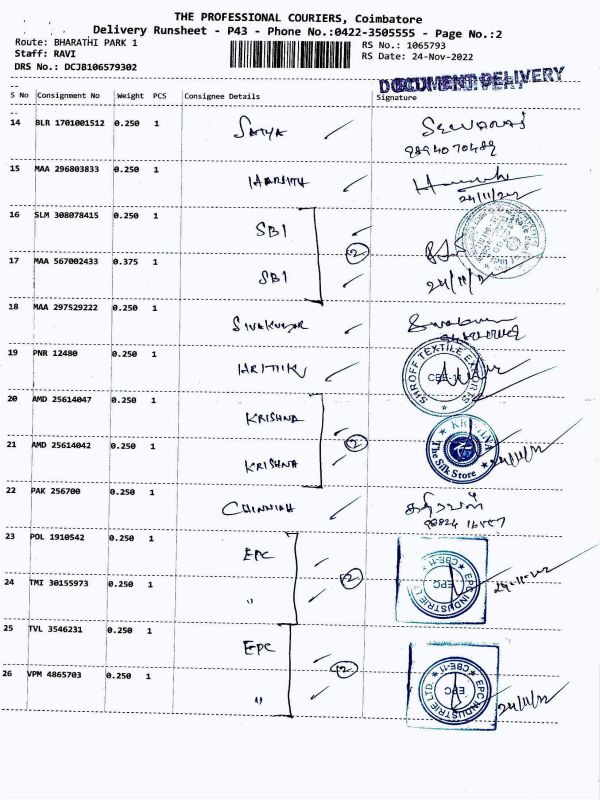 THE PROFESSIONAL COURIERS, Coimbatore
Delivery Runsheet - P43 - Phone No.:0422-3505555 - Page No.:2
Route: BHARATHI PARK 1
Staff: RAVI
DRS No.: DCJB106579302
RS No.: 1065793
RS Date: 24-Nov-2022
DOCUMENT DELIVERY
S No Consignment No Weight PCS Consignee Details Signature
14 BLR 1701001512 0.250 1 SATYA
15 MAA 296803833 0.250 1 HARSITH
24/11/22
16 SLM 308078415 0.250 1 SBI
2
17 MAA 567002433 0.375 1 SBI
24/11/
18 MAA 297529222 0.250 1 SIVAKUMAR
19 PNR 12480 0.250 1 HRITIK
SHROFF TEXTILE EXPORTS
CBE-11
20 AMD 25614047 0.250 1 KRISHNA
2
KRISHNA
The Silk Store
21 AMD 25614042 0.250 1 KRISHNA
24/11/22
22 PAK 256700 0.250 1 CHINNIAH
கதிரவன்
23 POL 1910542 0.250 1 EPC
2
EPC INDUSTRIE LTD. CBE-11
EPC
24-11-22
24 TMI 30155973 0.250 1 "
25 TVL 3546231 0.250 1 EPC
2
EPC INDUSTRIE LTD. CBE-11
EPC
26 VPM 4865703 0.250 1 "
24/11/22